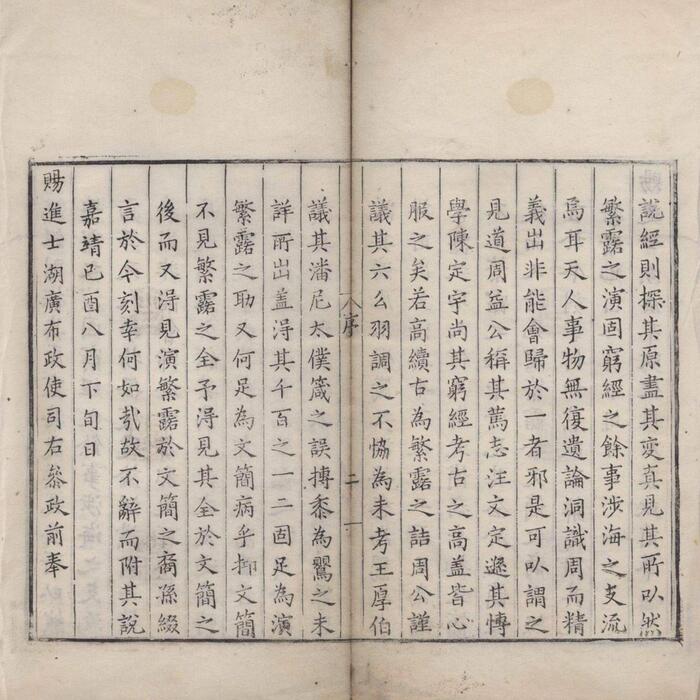 說經則探其原盡其變真見其所以然
繁露之演固窮經之餘事涉海之支流
焉耳天人事物無復遺論洞識周而精
義出非能會歸於一者邪是可以謂之
見道周益公稱其篤志汪文定遜其博
學陳定宇尚其窮經考古之高盖皆心
服之矣若高續古為繁露之詰周公謹
議其六么羽調之不協為未考王厚伯
八序
二
議其潘尼太僕箴之誤摶黍為鸎之未
詳所出盖得其千百之一二固足為演
繁露之助又何足為文簡病乎抑文簡
不見繁露之全予得見其全於文簡之
後而又得見演繁露於文簡之裔孫綴
言於今刻幸何如㢤故不辭而附其說
嘉靖己酉八月下旬日
賜進士湖廣布政使司右叅政前奉